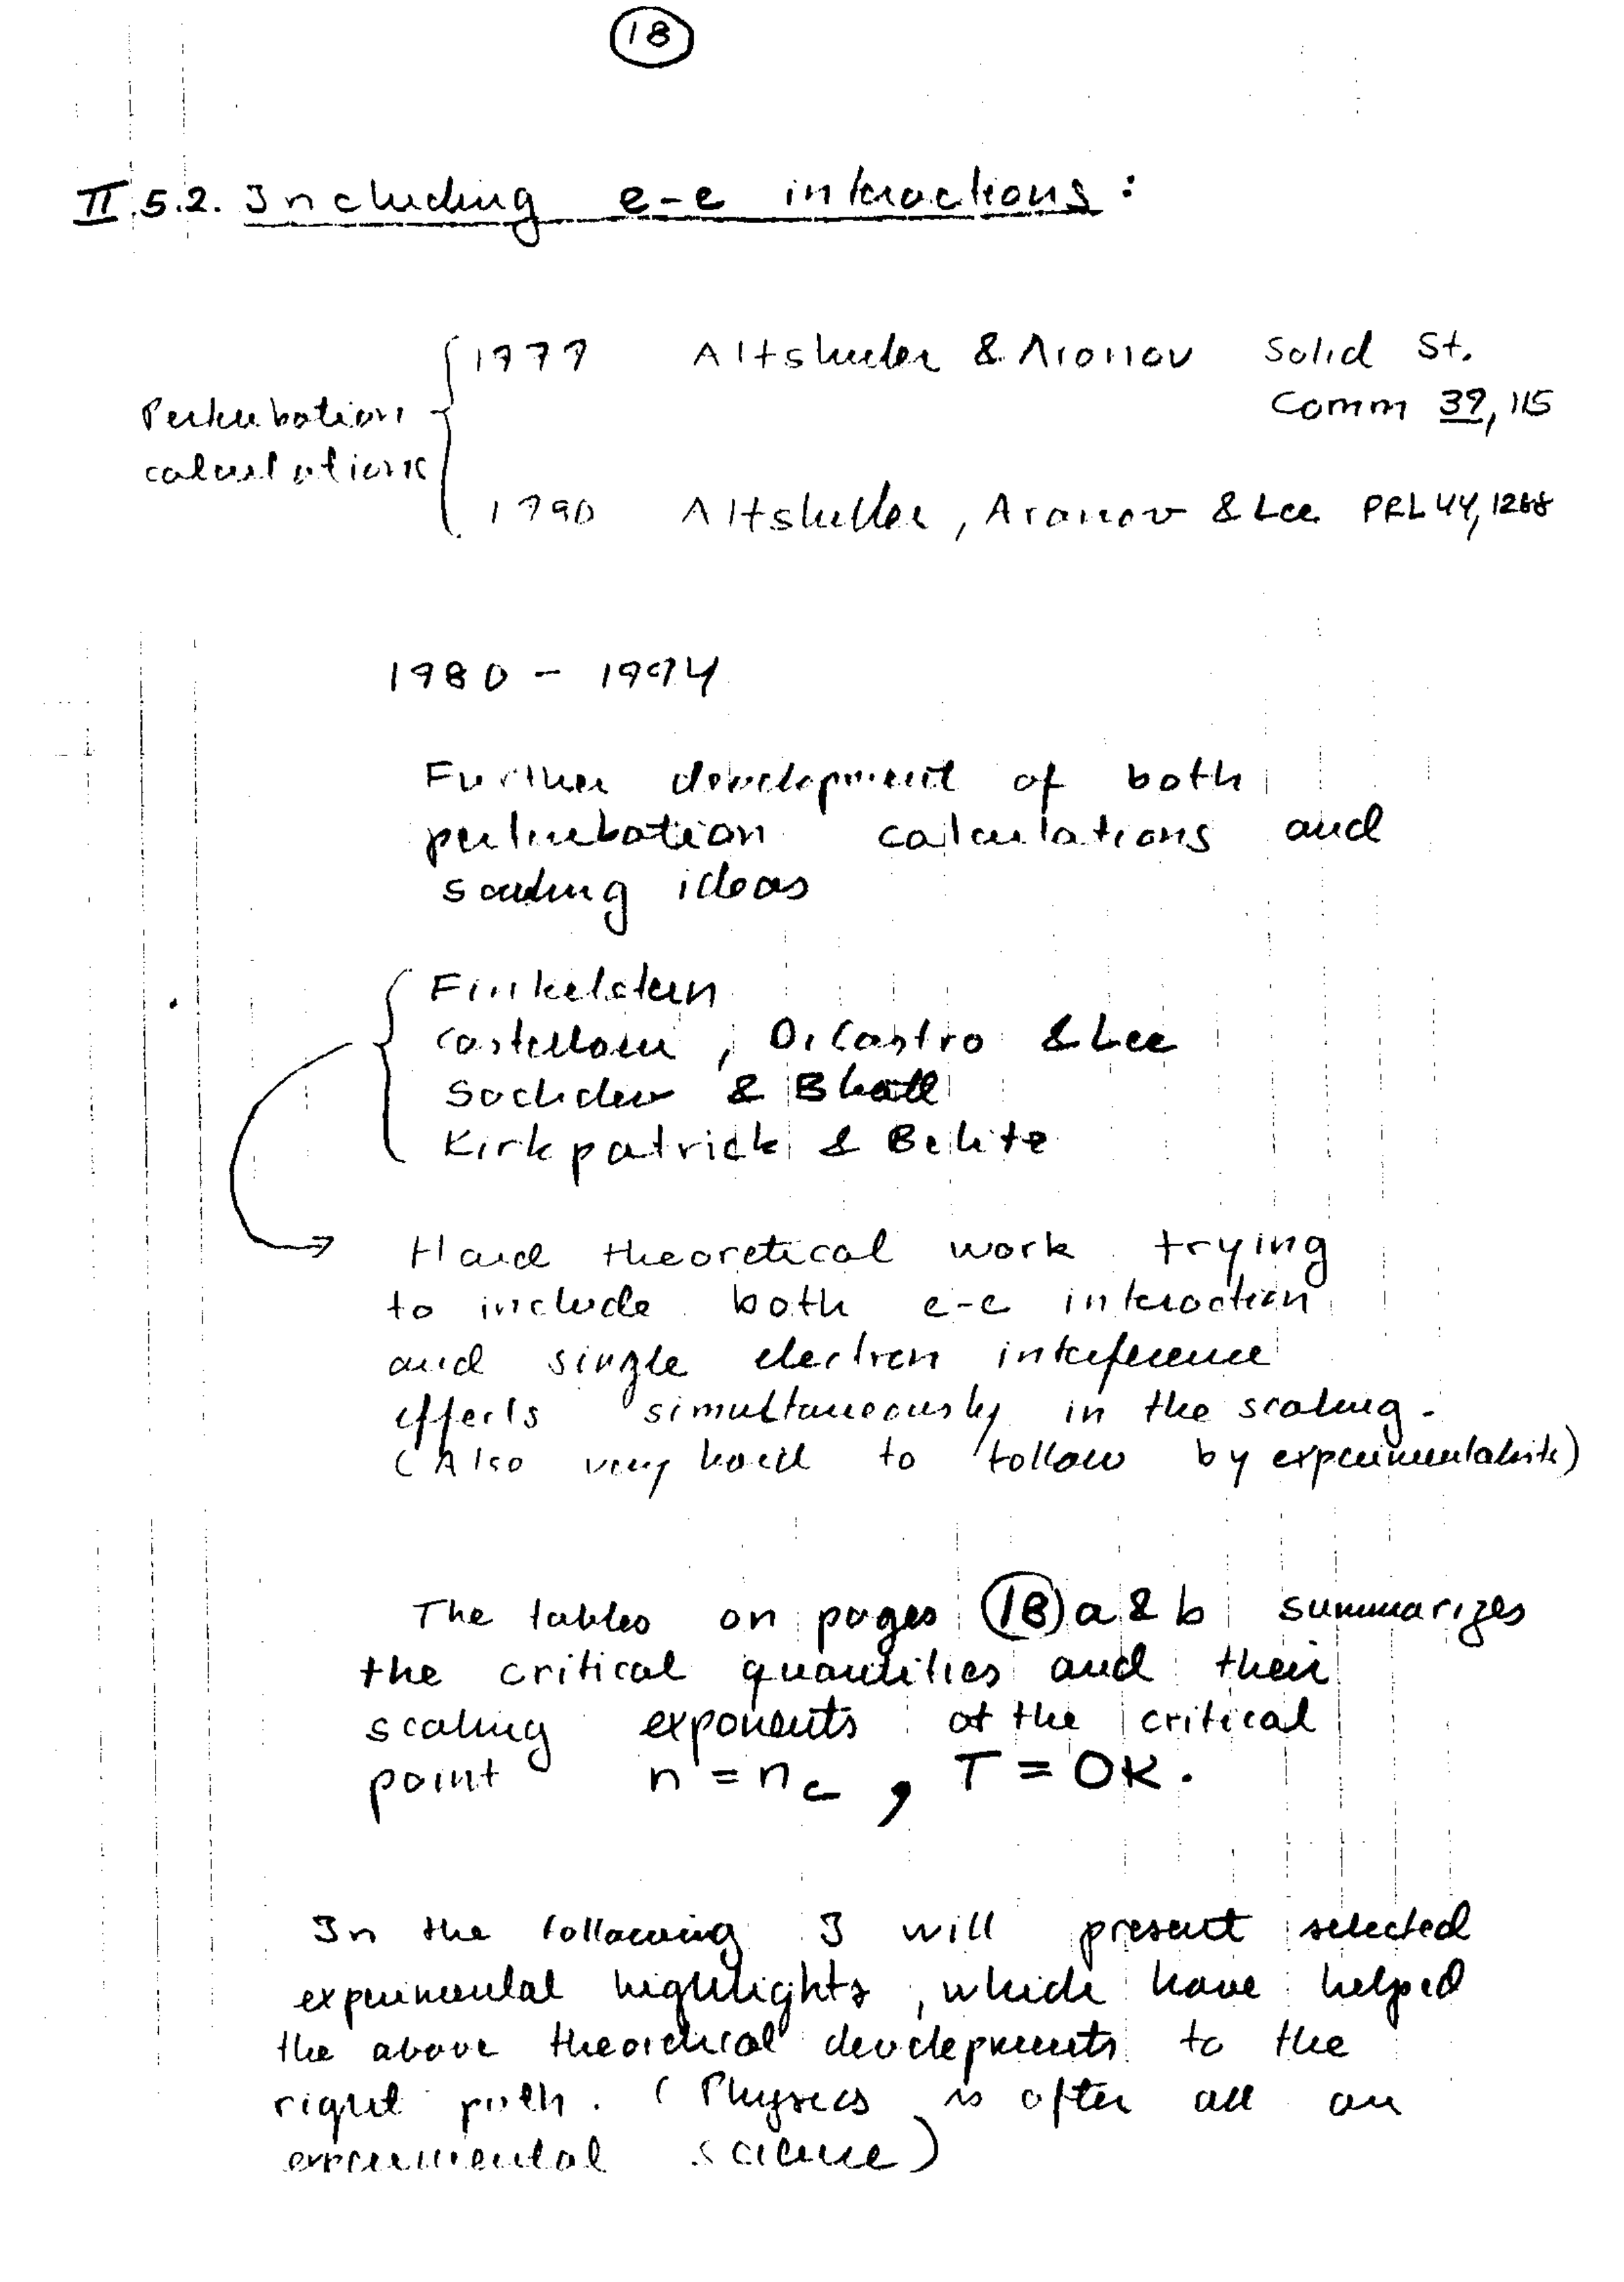 18
II.5.2. Including e-e interactions:
1979 Altshuler & Aronov Solid St.
Comm 39, 115
Perturbation
calculations
1980 Altshuller, Aronov & Lee PRL 44, 1288
1980 - 1994
Further development of both
perturbation calculations and
scaling ideas
Finkelstein
Castellani, DiCastro & Lee
Sachdev & Bhatt
Kirkpatrick & Belitz
Hard theoretical work trying
to include both e-e interaction
and single electron interference
effects simultaneously in the scaling.
(Also very hard to follow by experimentalists)
The tables on pages 18 a & b summarizes
the critical quantities and their
scaling exponents at the critical
point n = nc , T = 0K.
In the following I will present selected
experimental highlights, which have helped
the above theoretical developments to the
right path. (Physics is after all an
experimental science)